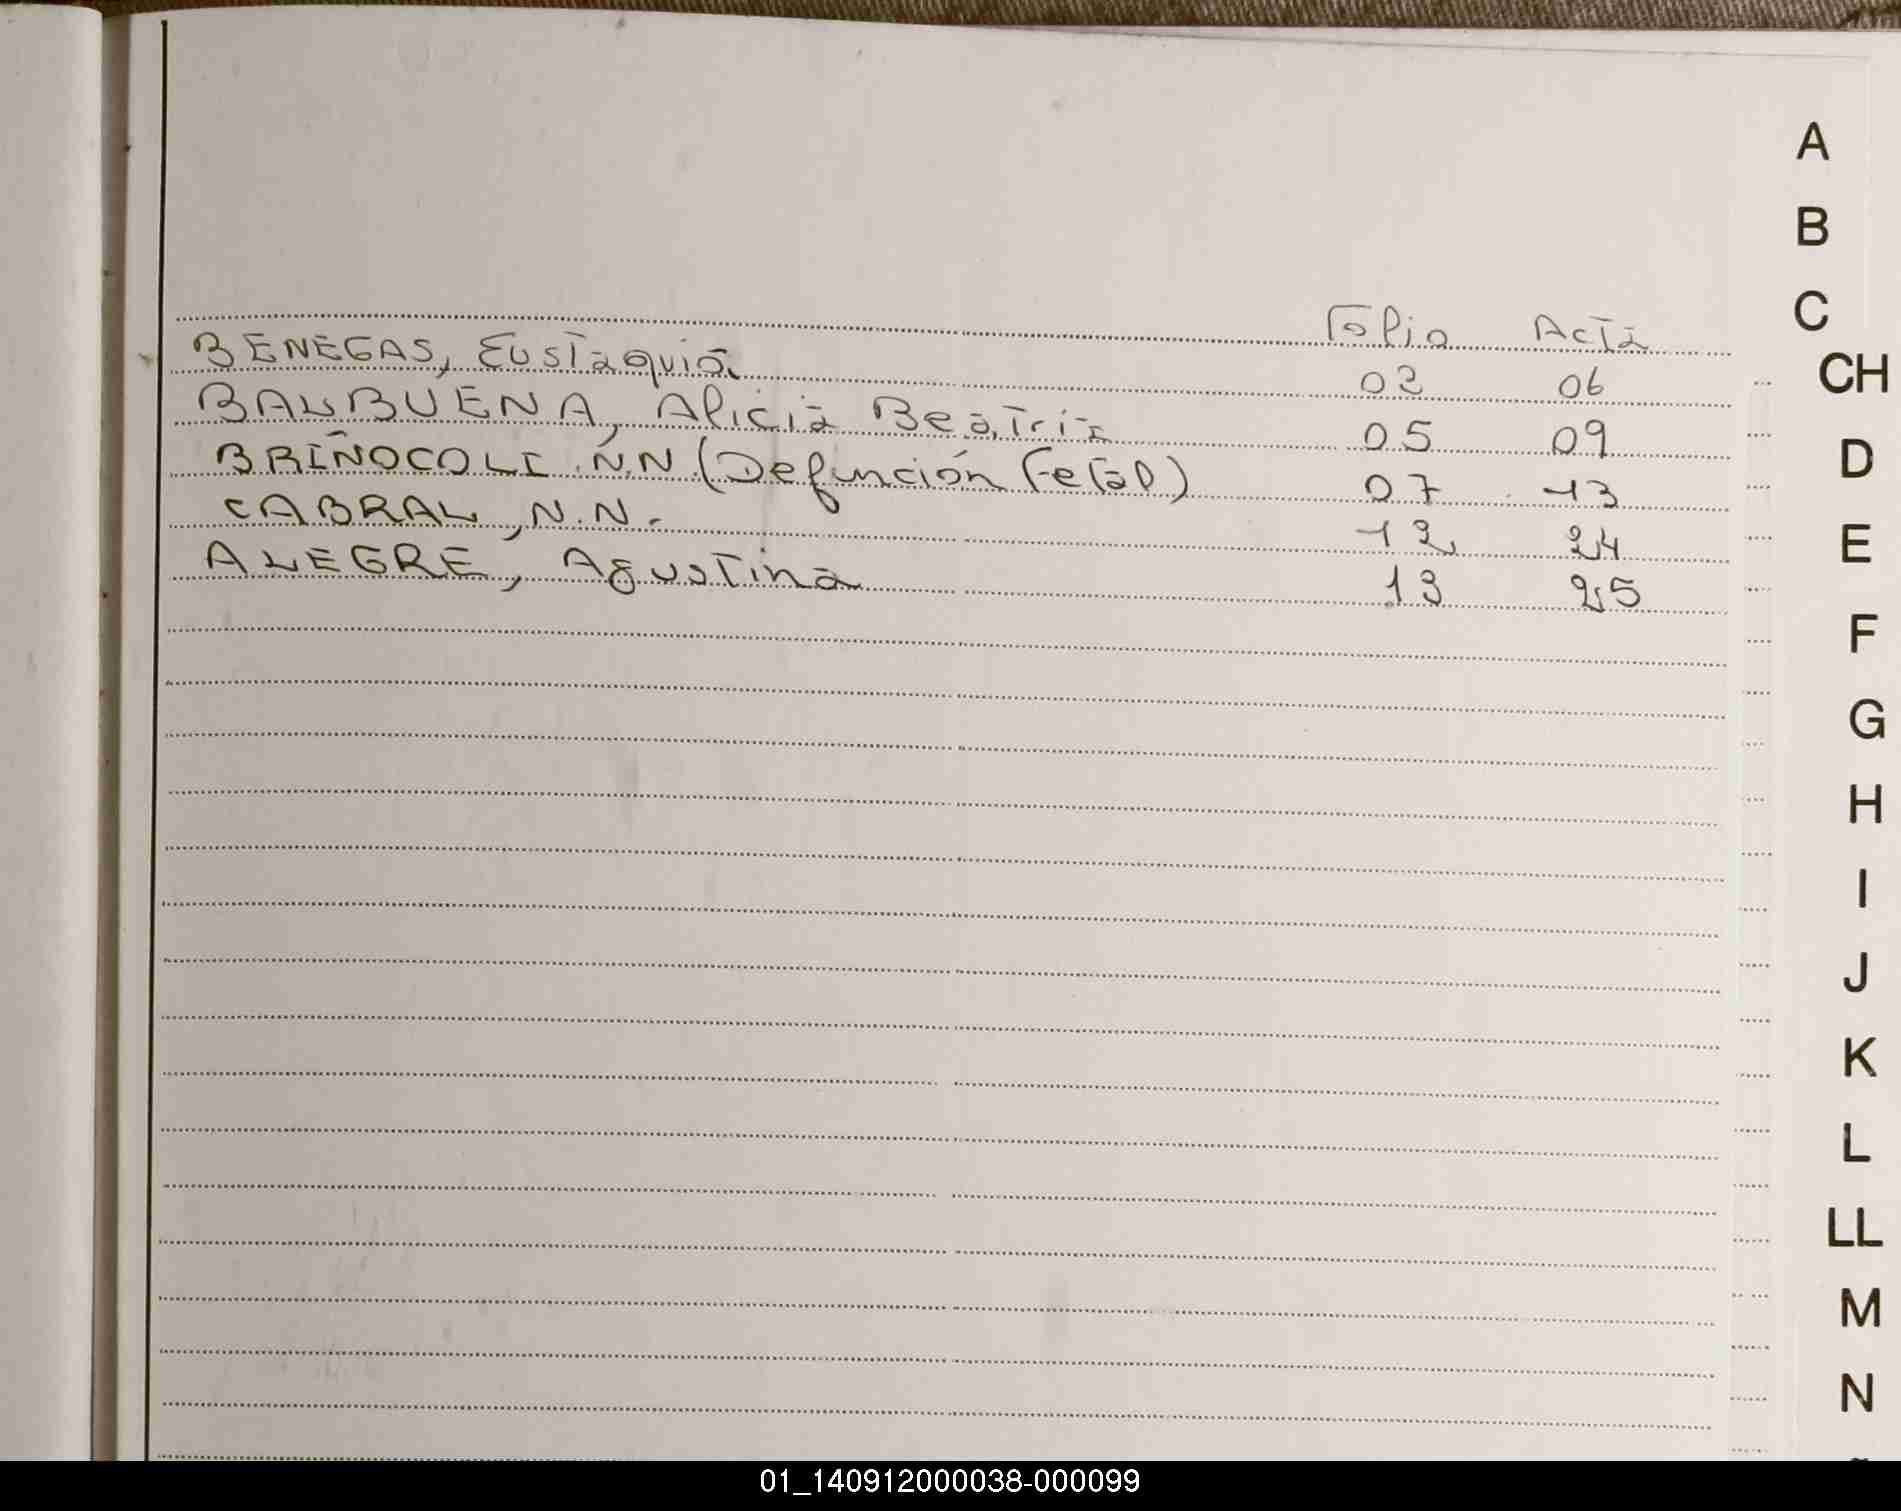 Folio Acta
BENEGAS, Eustaquia 02 06
BALBUENA, Alicia Beatriz 05 09
BRIÑOCOLI N.N (Defunción Fetal) 07 13
CABRAL, N.N.- 12 24
ALEGRE, Agustina 13 25
A
B
C
CH
D
E
F
G
H
I
J
K
L
LL
M
N
01_140912000038-000099